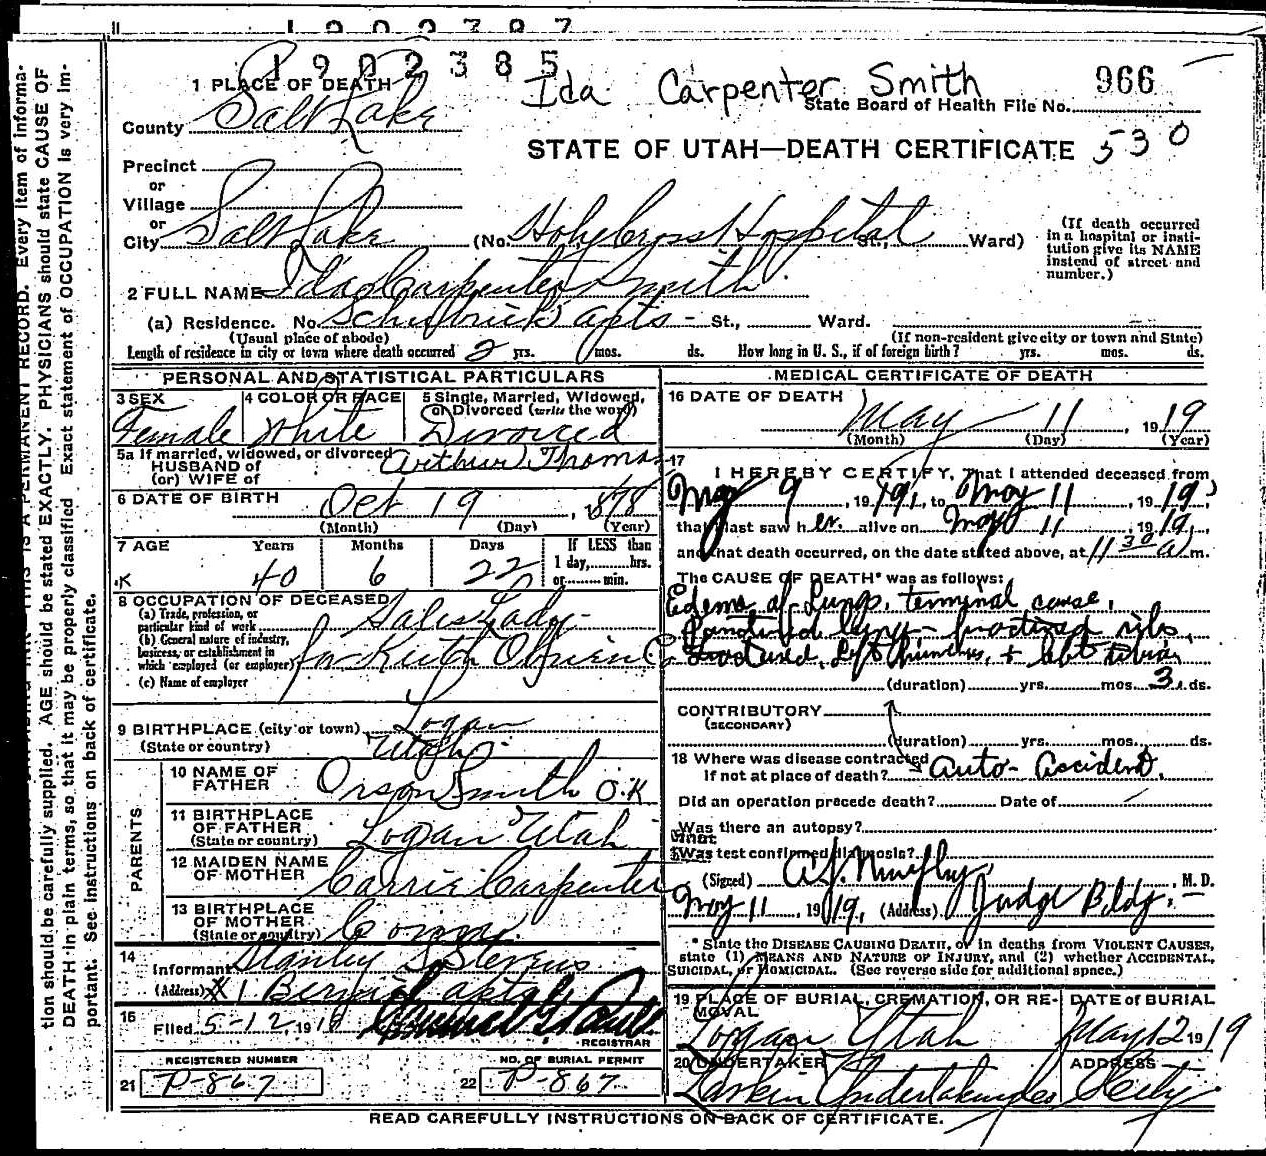 1902787
1902385
Ida Carpenter Smith
966
1 PLACE OF DEATH
State Board of Health File No.
County Salt Lake
STATE OF UTAH—DEATH CERTIFICATE 530
Precinct
or
Village
or
City Salt Lake (No. Holy Cross Hospital St., Ward)
(If death occurred in a hospital or institution give its NAME instead of street and number.)
2 FULL NAME Ida Carpenter Smith
(a) Residence. No. apts - St., Ward.
(Usual place of abode) (If non-resident give city or town and State)
Length of residence in city or town where death occurred 2 yrs. mos. ds. How long in U. S., if of foreign birth? yrs. mos. ds.
PERSONAL AND STATISTICAL PARTICULARS
3 SEX 4 COLOR OR RACE 5 Single, Married, Widowed, or Divorced (write the word)
Female White Divorced
5a If married, widowed, or divorced
HUSBAND of
(or) WIFE of
Arthur Thomas
6 DATE OF BIRTH
Oct 19, 1878
(Month) (Day) (Year)
7 AGE Years Months Days If LESS than
1 day, hrs.
or min.
40 6 22
8 OCCUPATION OF DECEASED
(a) Trade, profession, or
particular kind of work Sales Lady -
(b) General nature of industry,
business, or establishment in
which employed (or employer) for Keith Obrien Co
(c) Name of employer
9 BIRTHPLACE (city or town) Logan
(State or country) Utah -
PARENTS
10 NAME OF FATHER Orson Smith O.K
11 BIRTHPLACE OF FATHER (State or country) Logan Utah
12 MAIDEN NAME OF MOTHER Carrie Carpenter
13 BIRTHPLACE OF MOTHER (State or country)
14 Informant Stanley S Stevens
(Address) apts
15 Filed 5-12 191
REGISTRAR
REGISTERED NUMBER
21 P-867
NO. OF BURIAL PERMIT
22 P-867
MEDICAL CERTIFICATE OF DEATH
16 DATE OF DEATH
May 11, 1919
(Month) (Day) (Year)
17 I HEREBY CERTIFY, That I attended deceased from
May 9, 1919, to May 11, 1919,
that I last saw her alive on May 11, 1919,
and that death occurred, on the date stated above, at 11 30 a m.
The CAUSE OF DEATH* was as follows:
Edema of Lungs, terminal cause,
Punctured lung - fractured ribs,
Fractured, Left humerus, + left
(duration) yrs. mos. 3 ds.
CONTRIBUTORY
(SECONDARY)
(duration) yrs. mos. ds.
18 Where was disease contracted
If not at place of death? Auto - accident.
Did an operation precede death? Date of
Was there an autopsy?
What
Was test confirmed diagnosis?
(Signed) A.J. Murphy, M. D.
May 11, 1919, (Address) Judge Bldg. -
* State the DISEASE CAUSING DEATH, or in deaths from VIOLENT CAUSES,
state (1) MEANS AND NATURE OF INJURY, and (2) whether ACCIDENTAL,
SUICIDAL, or HOMICIDAL. (See reverse side for additional space.)
19 PLACE OF BURIAL, CREMATION, OR REMOVAL DATE of BURIAL
Logan Utah May 12 1919
20 UNDERTAKER ADDRESS
Larkin Undertaking Co City
READ CAREFULLY INSTRUCTIONS ON BACK OF CERTIFICATE.
THIS IS A PERMANENT RECORD. Every item of information should be carefully supplied. AGE should be stated EXACTLY. PHYSICIANS should state CAUSE OF DEATH in plain terms, so that it may be properly classified. Exact statement of OCCUPATION is very important. See instructions on back of certificate.